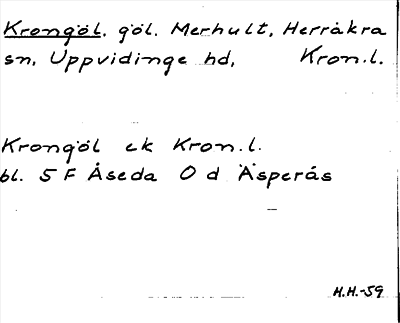 Krongöl, göl. Merhult, Herråkra
sn, Uppvidinge hd, Kron.l.
Krongöl ek Kron.l.
bl. 5 F Åseda O d Äsperås
H.H.-59